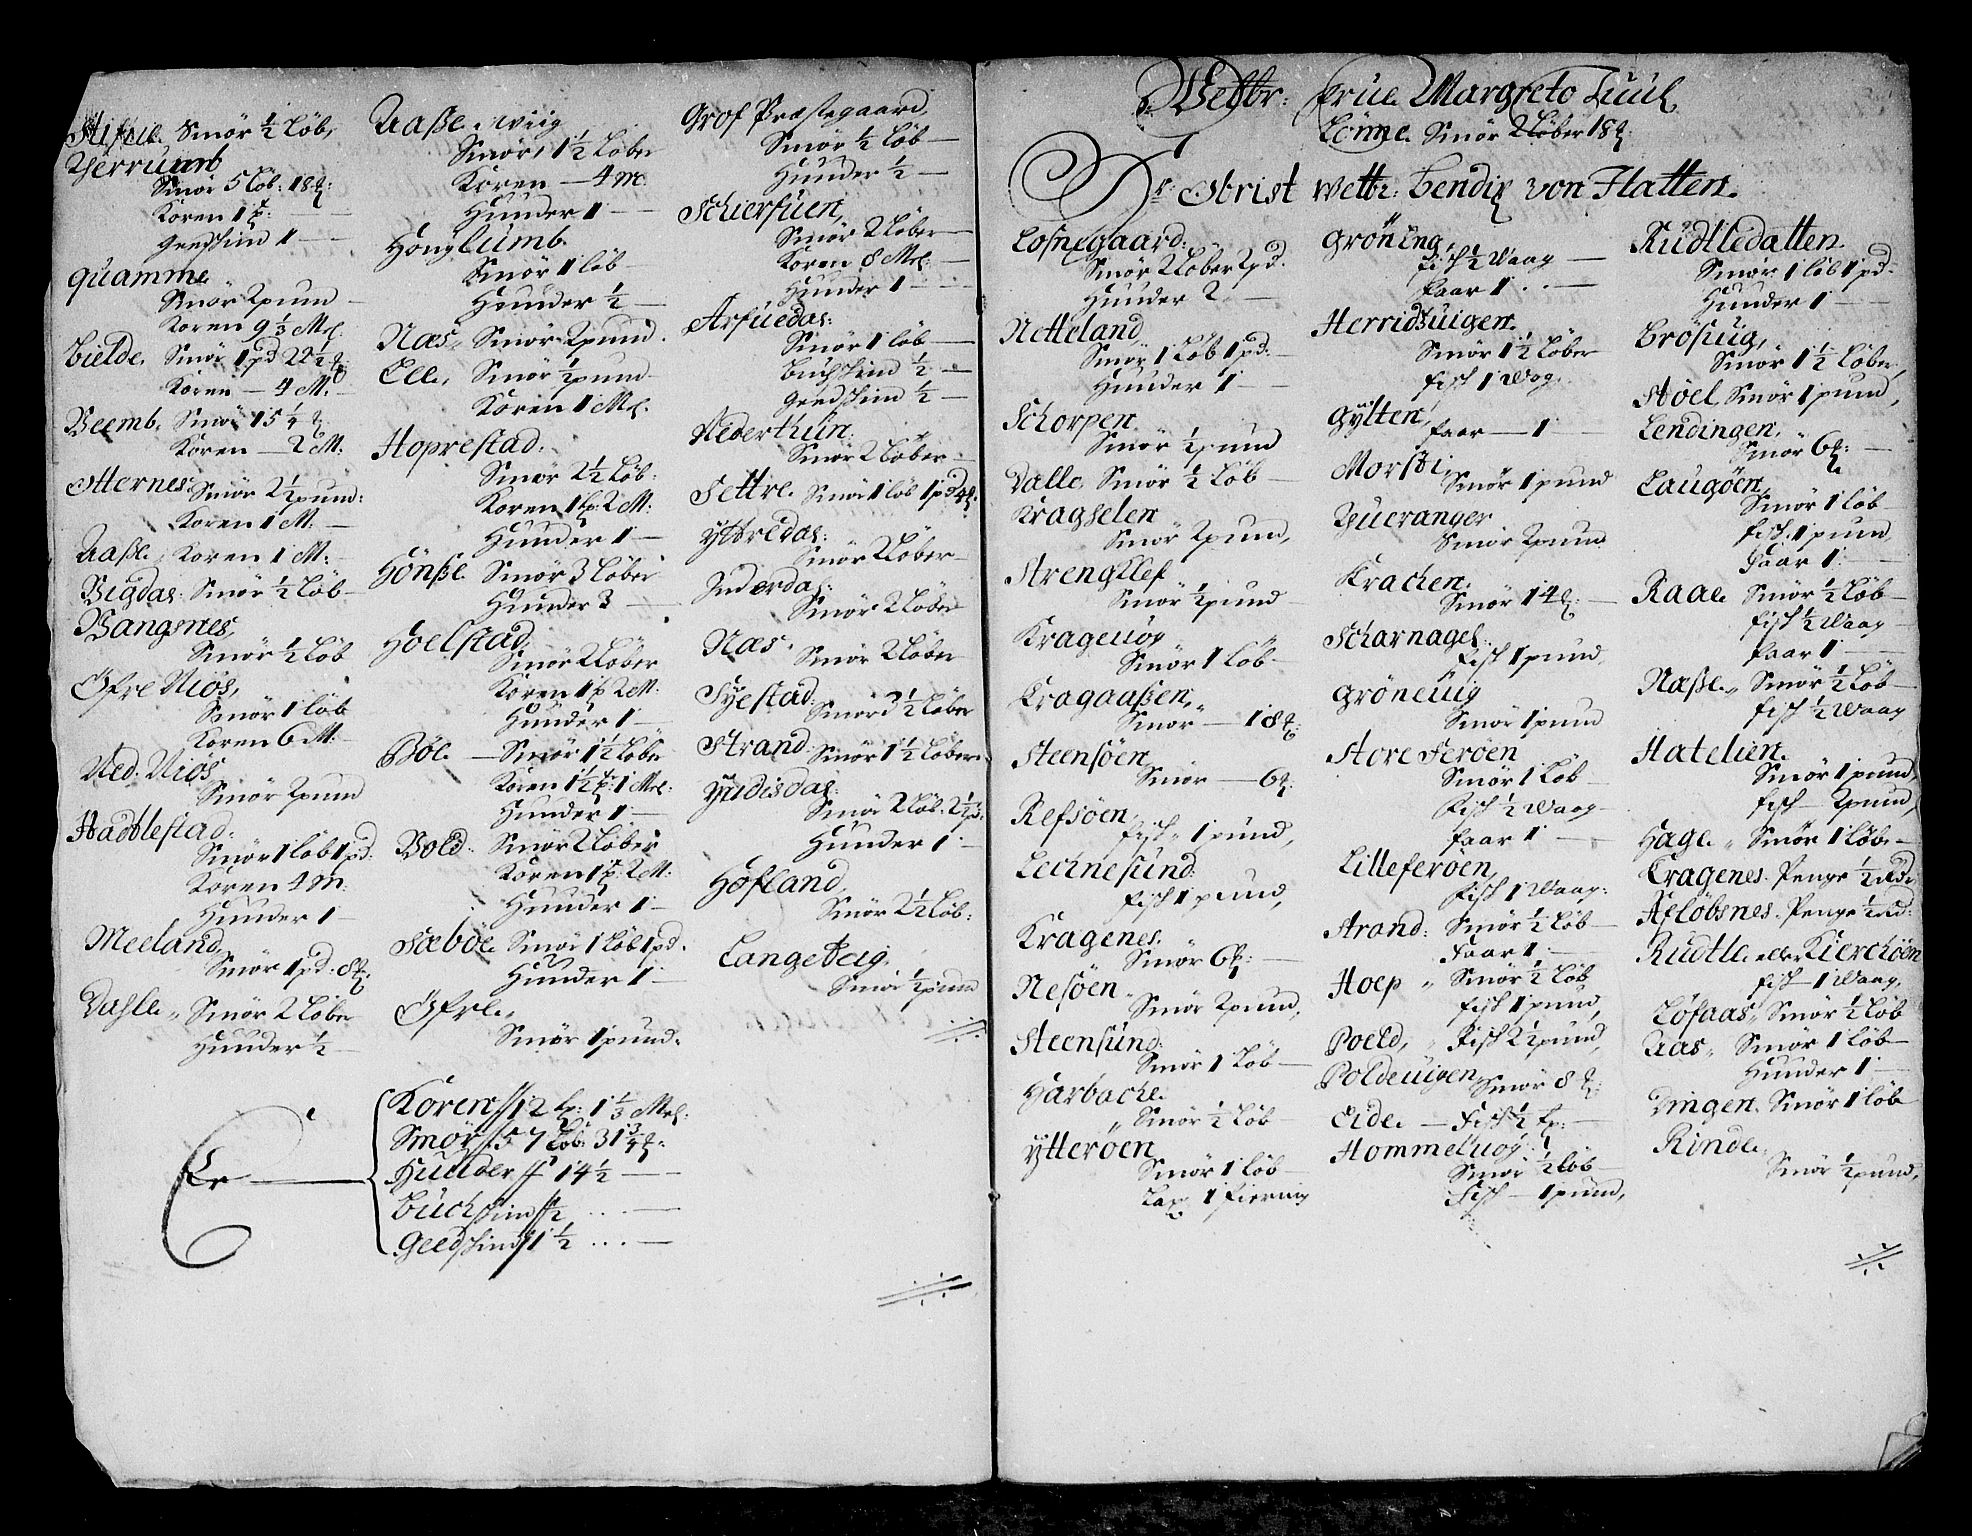 Smör ½ Löb,
Smör 5 Löb: 18
Koren 1
Geedskind 1
Quamme
Smör 2 pund
Koren 9⅓ Mel.
Tielde. Smör 1 pd 22½
Koren — 4 M.
Veemb. Smör 15¼
Koren — 2 M:
Otternes: Smör 2½ pund:
Koren 1 M:
Aaße. Koren 1 M:
Vigdas: Smör ½ Löb
Vangsnes,
Smör ½ Löb
Öfre Niös,
Smör 1 löb
Koren 6 M:
Ned: Niös
Smör 2 pund
Haddlestad:
Smör 1 Löb 1 pd:
Koren 4 M:
Hunder 1
Meeland,
Smör 1 pd. 8
Dahle. Smör 2 Löber
Hunder ½
Aaße. wiig
Smör, 1½ Löber
Koren — 4 M:
Hunder 1
Höng lumb.
Smör 1 löb
Hunder ½
Næs, Smör 2 pund.
Elle, Smör ½ pund
Koren 1 Mel.
Hoprestad:
Smör 2½ Löb:
Koren 1 tp: 2 M:
Hunder 1
Hönße. Smör 3 Löber
Hunder 3
Hoelstad,
Smör 2 Löber
Koren 1 tp 2 M:
Hunder 1
Böe. — Smör 1½ Löber
Koren 1½ tp: 1 Mel:
Hunder 1
Vold: Smör 2 Löber
Koren 1 tp: 2 M:
Hunder 1
Sæböe. Smör 1 Löb 1 pd.
Hunder 1
Öfre.
Smör 1 pund.
Grof Præstegaard,
Smör ½ Löb
Hunder ½
Schierfuen,
Smör 2 Löber
Koren 8 Mel:
Hunder 1
Arfuedas:
Smör 1 löb
Buchskind ½
Geedskind ½
Nederthun:
Smör 2 Löber
Settre. Smör 1 löb 1 pd 4
Yttredas:
Smör 2 Löber
Inderdas:
Smör 2 Löber
Næs.
Smör 2 Löber
Syestad:
Smör 3½ Löber
Strand: Smör 1½ Löber
Smör 2 Löb. 2½ p:
Hunder 1
Höfland,
Smör 2½ Löb:
Langeteig,
Smör ½ pund
Er —
Koren 12 tp: 1⅓ Mel:
Smör 57 Löb: 31¾
Hunder 14½
Buchskind ½
Geedskind 1½
Velbr: Frue Margreto Juul
Lönne. Smör 2 Löber 18
Hr Obrist Welbr: Bendix von Hatten.
Losnegaard:
Smör 2 Löber 2 pd.
Hunder 2
Netteland
Smör 1 Löb 1 pd:
Hunder 1
Schorpen
Smör ½ pund
Dalle. Smör ½ Löb
Kragselen
Smör 2 pund,
Strengllef
Smör ½ pund
Krageuog
Smör 1 Löb
Kragaaßen,
Smör — 18
Steensöen,
Smör — 6
Refsöen,
fisk 1 pund,
Lechnesund:
fisk 1 pund,
Kragenes.
Smör 6
Nesöen
Smör 2 pund,
Steensund:
Smör 1 Löb
Harbache.
Smör ½ Löb
Ytteröen
Smör 1 Löb
Lax 1 fierning
Gröning,
fisk ½ Waag
Faar 1
Herridsuigen.
Smör 1½ Löber
fisk 1 Wog.
Gylten, Faar — 1
Smör 1 pund
Queranger
Smör 2 pund
Krachen,
Smör 14
Scharnagel:
fisk 1 pund,
Gröneuig
Smör 1 pund
Store Feröen
Smör 1 Löb
Fisk ½ Waag
Faar 1
Lilleferöen,
Fisk 1 Waag:
Strand: Smör ½ Löb
Faar 1
Hoep „ Smör ½ Löb
fisk 1 pund,
Poeld, „ Fisk 2½ pund,
Poldeuigen,
Smör 8
Eide. — Fisk ½ tp:
Hommeluog:
Smör ½ löb
Fisk — 1 pund,
Rudtledalten.
Smör 1 löb 1 pd
Hunder 1
Brösuig,
Smör 1½ Löber,
Stöel, Smör 1 pund,
Lendingen,
Smör 6
Laugöen,
Smör 1 löb
fisk 1 pund,
Faar 1
Raae. Smör ½ Löb
fisk ½ Waag
Faar 1
Næße. „ Smör ½ Löb
fisk ½ Waag
Hatelien.
Smör 1 pund,
fisk — 2 pund,
Hage. „ Smör 1 Löb
Kragenes. Penge ½ Rd:
Aflöbsnes. Penge ½ Rd:
Rudtle. eller Kierchöen
fisk — 1 Waag,
Löfaas, Smör ½ Löb
Aas, Smör 1 löb
Hunder 1
Dingen. Smör 1 löb
Rinde.
Smör ½ pund,